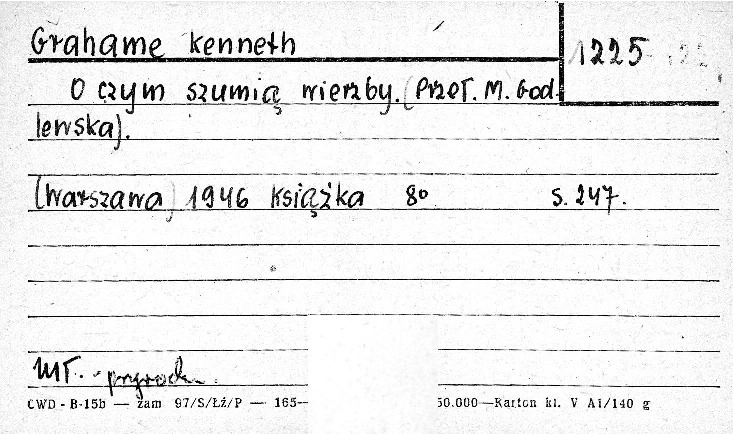 Grahame Kenneth
1225
O czym szumią wierzby. (Przeł. M. God-
lewska).
(Warszawa) 1946 Książka 8o s. 247.
Mł. - przyrodn.
CWD - B-15b — zam 97/S/Łź/P — 165— 50.000—Karton kl. V Ai/140 g